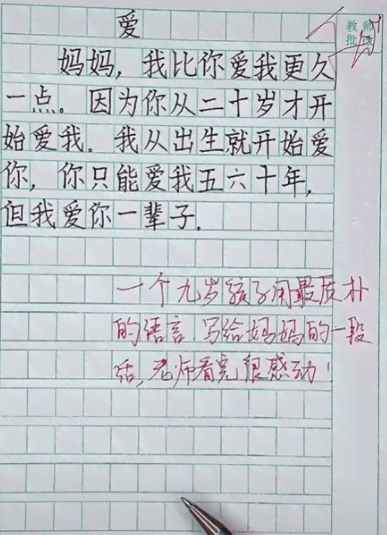 爱
妈妈，我比你爱我更久
一点。因为你从二十岁才开
始爱我。我从出生就开始爱
你，你只能爱我五六十年，
但我爱你一辈子。
教师
一个九岁孩子用最质朴
的语言，写给妈妈的一段
话，老师看完很感动！